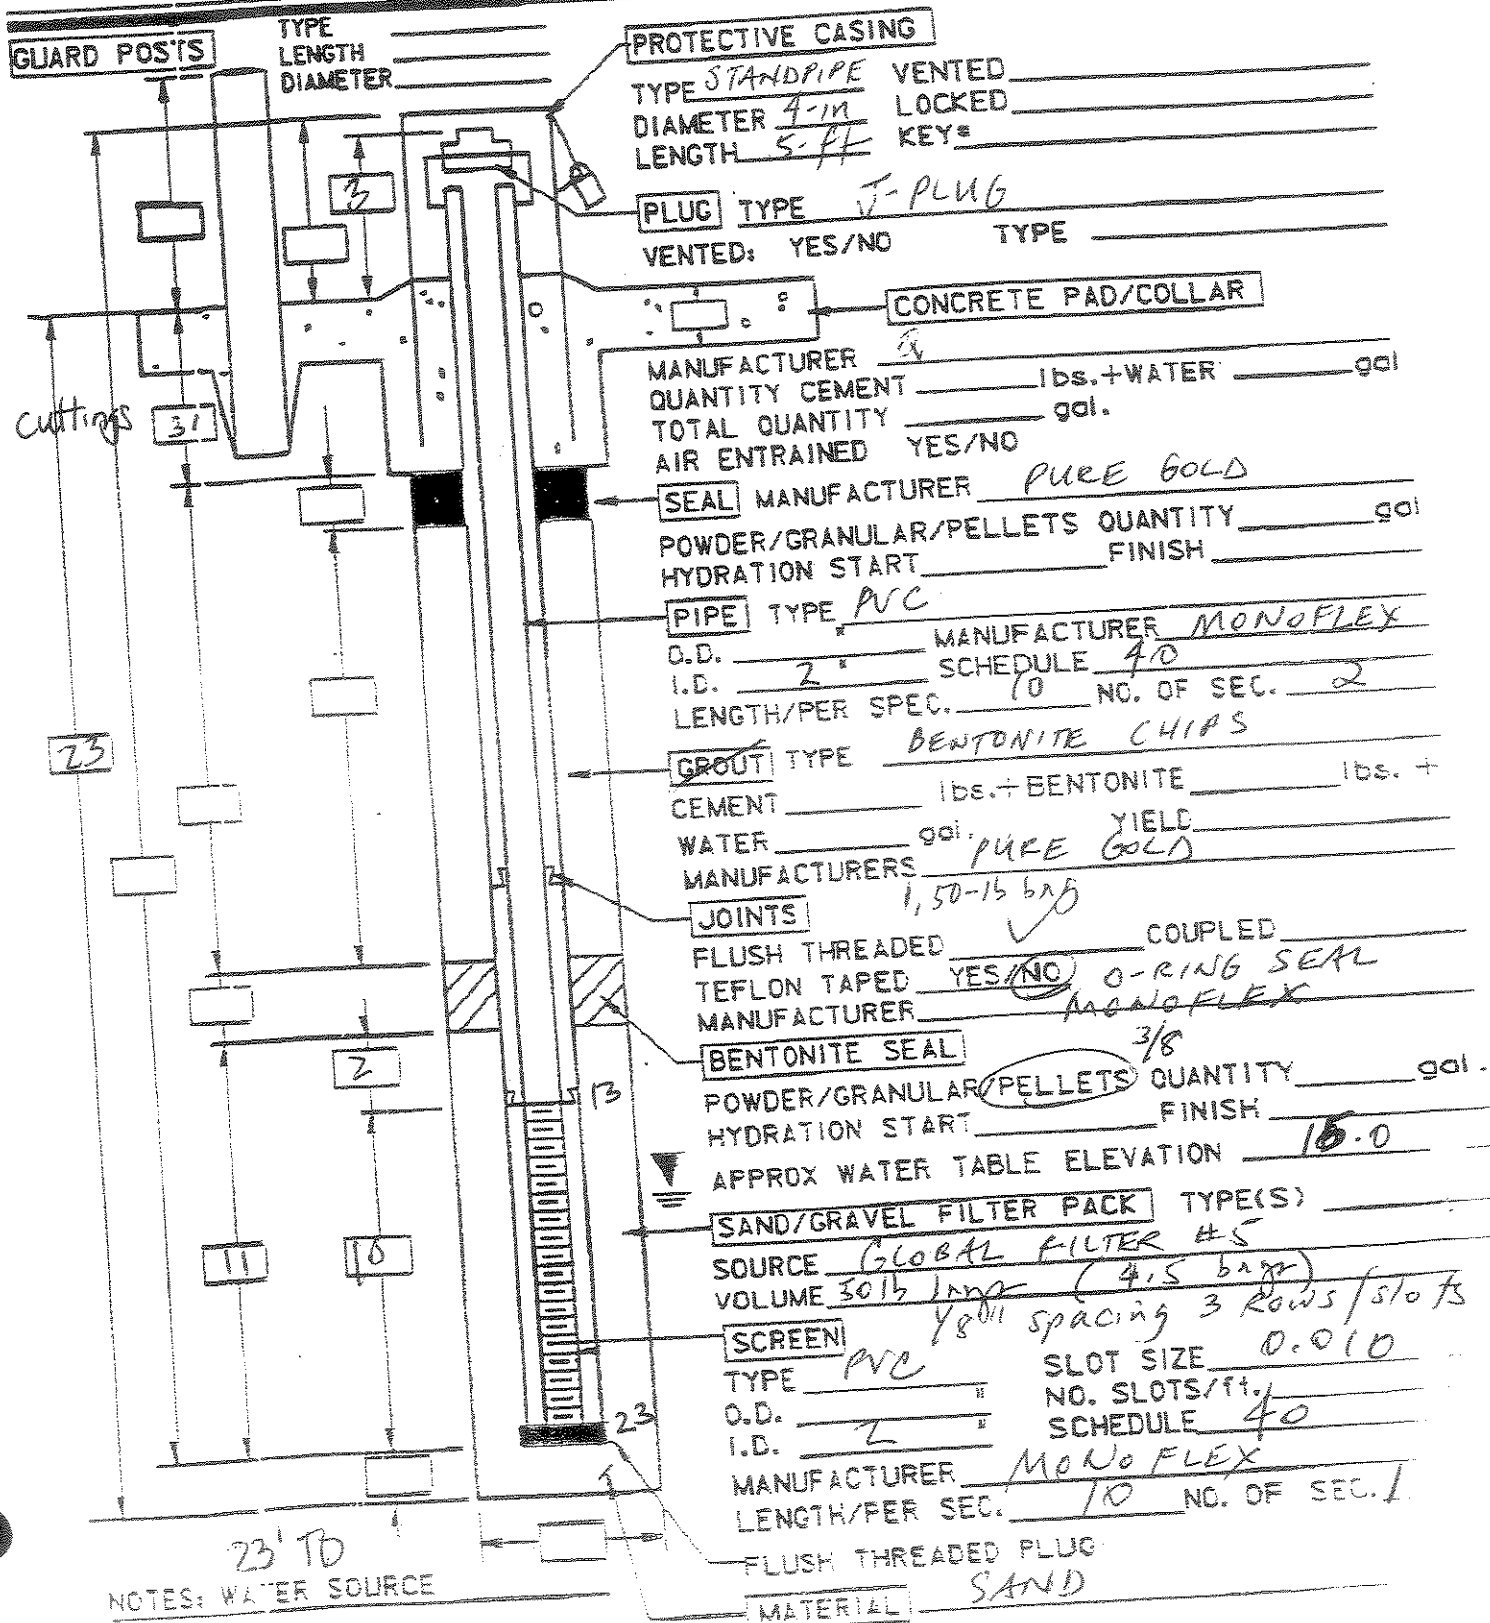 GUARD POSTS
TYPE
LENGTH
DIAMETER
PROTECTIVE CASING
TYPE STANDPIPE VENTED
DIAMETER 4-in LOCKED
LENGTH 5-ft KEY#
3
PLUG TYPE J-PLUG
VENTED: YES/NO TYPE
CONCRETE PAD/COLLAR
MANUFACTURER
QUANTITY CEMENT lbs.+WATER gal
TOTAL QUANTITY gal.
AIR ENTRAINED YES/NO
cuttings 3'
SEAL MANUFACTURER PURE GOLD
POWDER/GRANULAR/PELLETS QUANTITY gal
HYDRATION START FINISH
PIPE TYPE PVC
O.D. " MANUFACTURER MONOFLEX
I.D. 2 " SCHEDULE 40
LENGTH/PER SPEC. 10 NO. OF SEC. 2
23
GROUT TYPE BENTONITE CHIPS
CEMENT lbs.+BENTONITE lbs. +
WATER gal. YIELD
MANUFACTURERS PURE GOLD
1, 50-lb bag
JOINTS
FLUSH THREADED ✓ COUPLED
TEFLON TAPED YES/NO O-RING SEAL
MANUFACTURER MONOFLEX
BENTONITE SEAL 3/8
POWDER/GRANULAR/PELLETS QUANTITY gal.
HYDRATION START FINISH
2
13
APPROX WATER TABLE ELEVATION .0
SAND/GRAVEL FILTER PACK TYPE(S)
SOURCE GLOBAL FILTER #5
VOLUME 50lb bags (4.5 bags)
1/8" spacing 3 Rows/slots
11
10
SCREEN
TYPE PVC SLOT SIZE 0.010
O.D. " NO. SLOTS/ft.
I.D. 2 " SCHEDULE 40
23
MANUFACTURER MONOFLEX
LENGTH/PER SEC. 10 NO. OF SEC. 1
FLUSH THREADED PLUG
23' TD
NOTES: WATER SOURCE
MATERIAL SAND